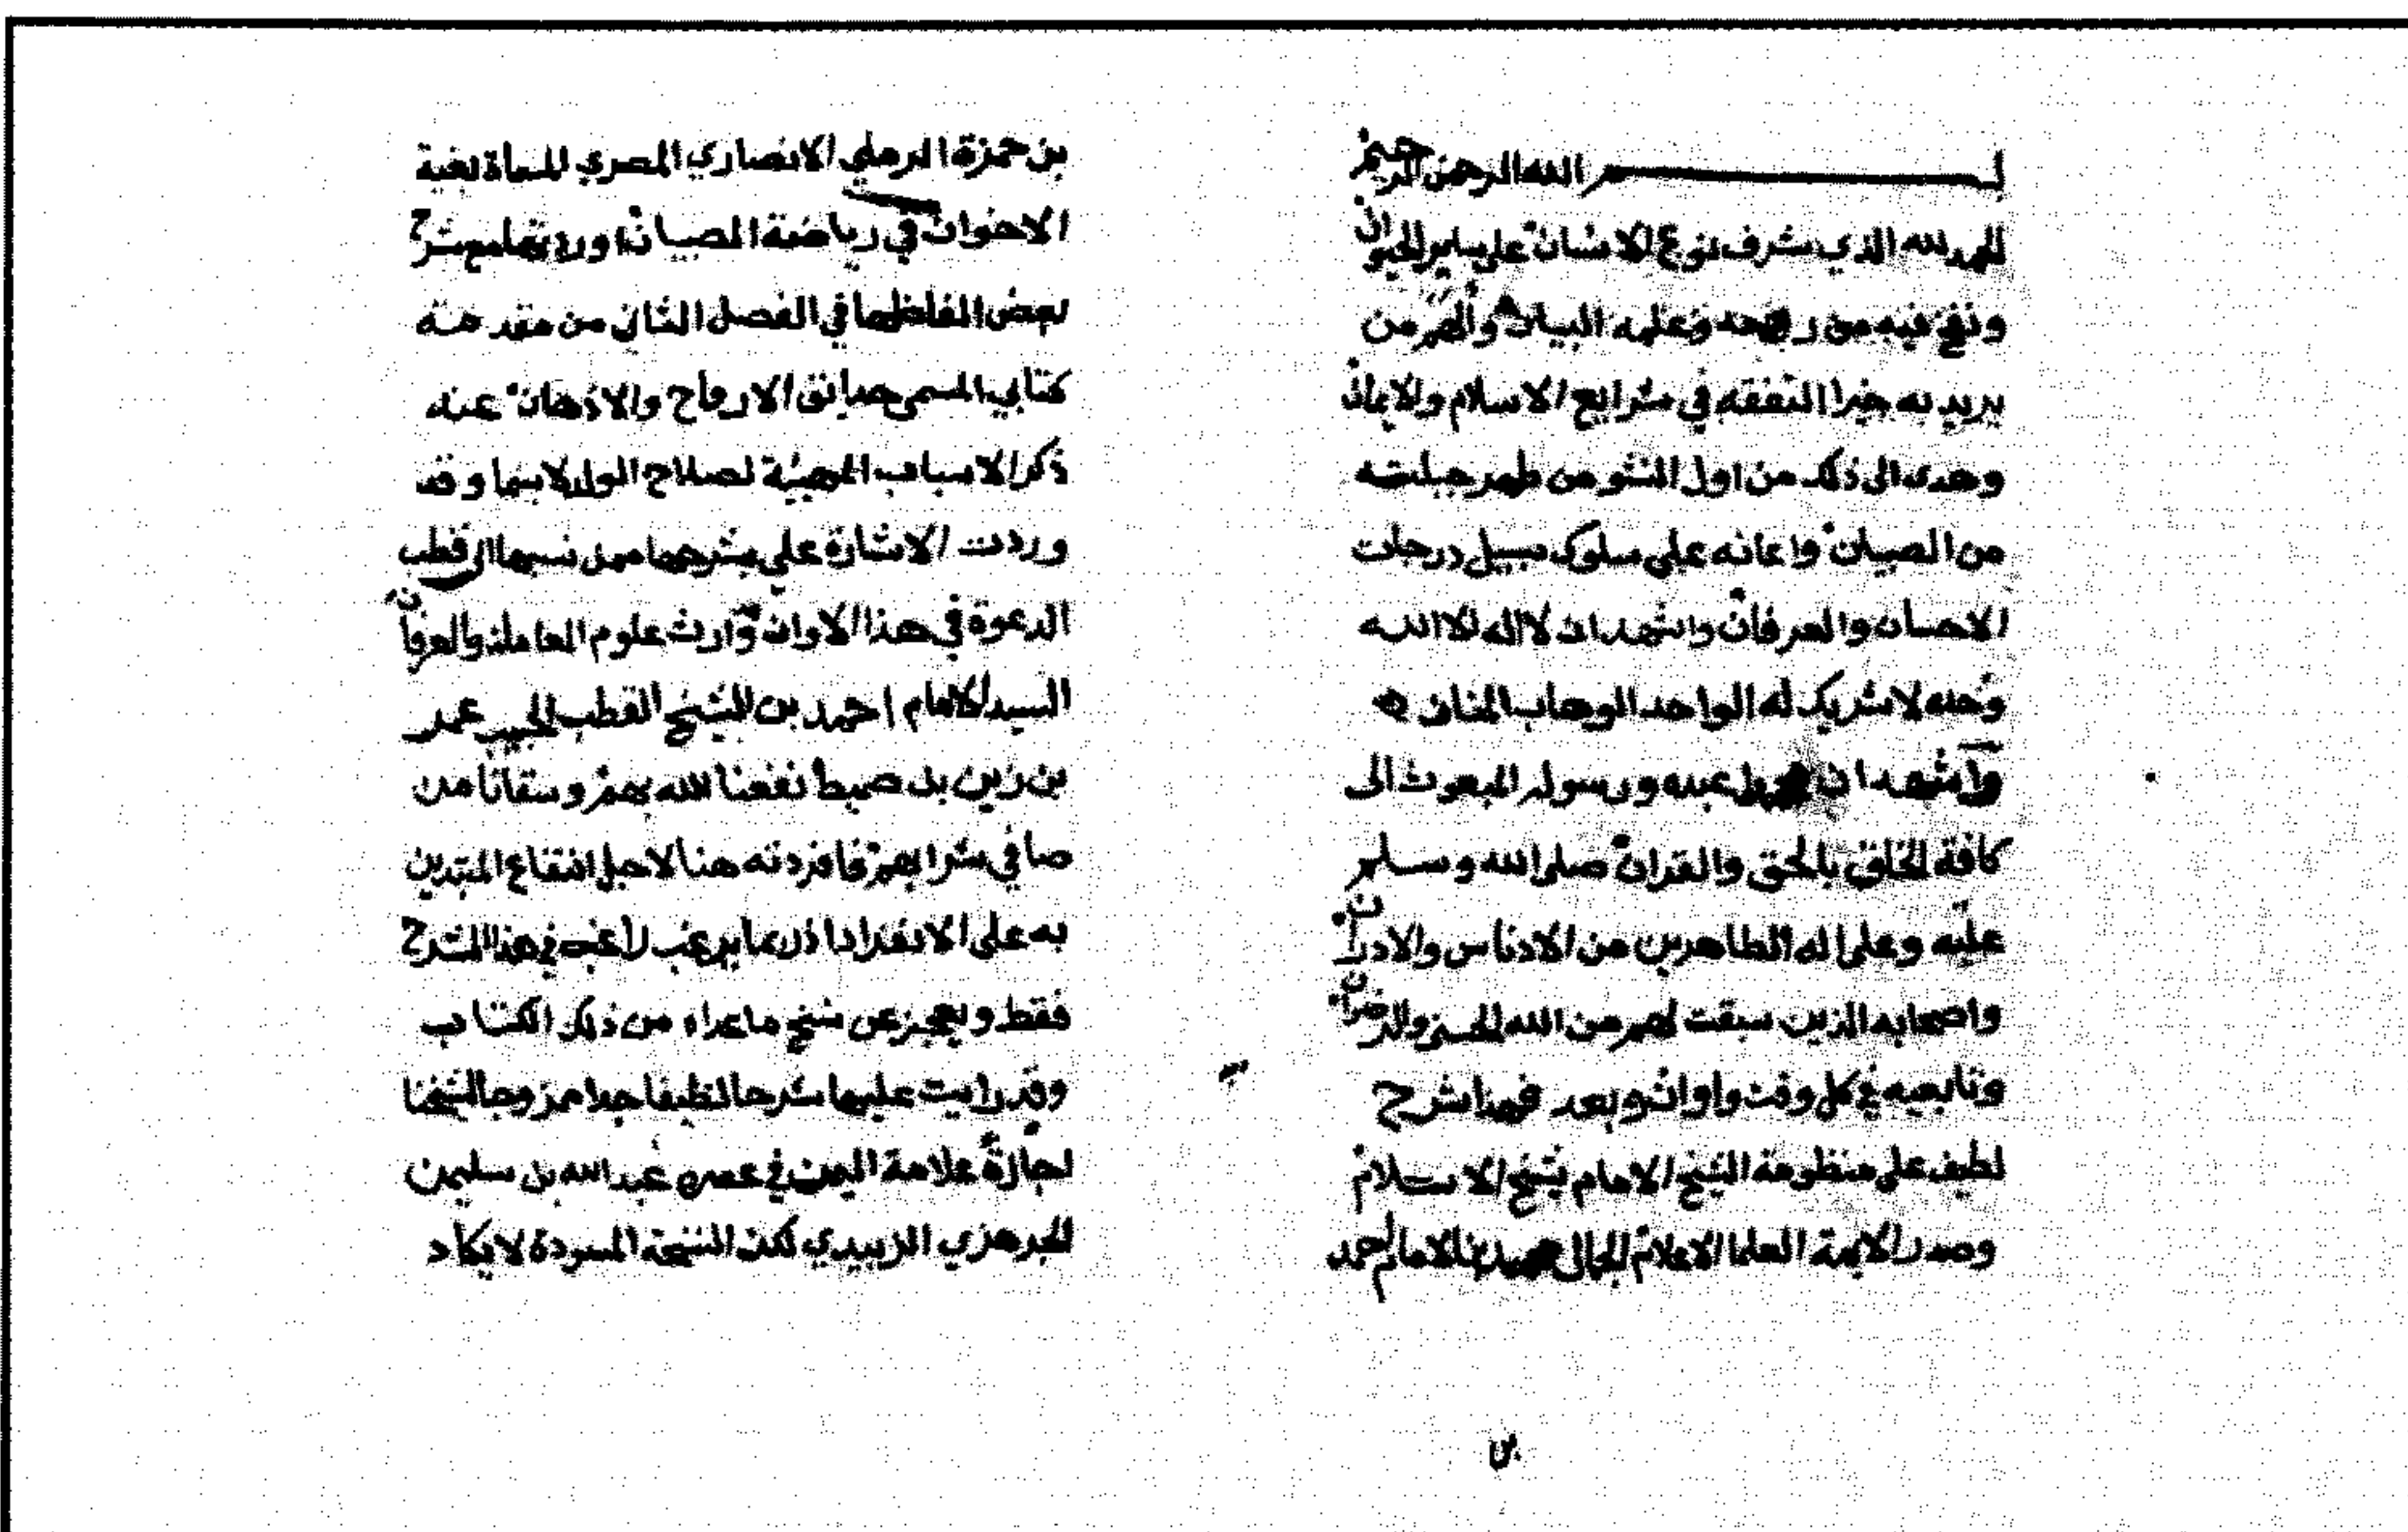 بسم الله الرحمن الرحيم
الحمد لله الذي شرف نوع الانسان على ساير الحيوان
ونفخ فيه من روحه وعلمه البيان والهم من
يريد به خيرا التفقه في شرايع الاسلام والايمان
وهدى الى ذلك من اول النشو من طهر جبلته
من الصبيان واعانه على سلوك سبيل درجات
الاحسان والعرفان واشهد ان لا اله الا الله
وحده لا شريك له الواحد الوهاب المنان
واشهد ان محمدا عبده ورسوله المبعوث الى
كافة الخلق بالحق والقران صلى الله وسلم
عليه وعلى اله الطاهرين من الادناس والادران
واصحابه الذين سبقت لهم من الله الحسنى والرضوان
وتابعيه في كل وقت واوان وبعد فهذا شرح
لطيف على منظومة الشيخ الامام شيخ الاسلام
وصدر الايمة العلما الاعلام الجمال محمد بن الامام احمد
بن
بن حمزة الرملي الانصاري المصري المسماة بغية
الاخوان في رياضة الصبيان اوردتها مع شرح
بعض الفاظها في الفصل الثاني من مقدمة
كتابي المسمى حدايق الارواح والاذهان عند
ذكر الاسباب لصلاح الولد لاسيما وقد
وردت الاشارة على بشرحها ممن نسبها الى قطب
الدعوة في هذا الاوان وارث علوم المعاملة والعرفان
السيد الامام احمد بن الشيخ القطب الحبيب عمر
بن زين بن صميط نفعنا الله بهم وسقانا من
صافي شرابهم فافردته هنا لاجل انتفاع المبتدين
به على الانفراد اذ ربما يرغب راغب في هذا الشرح
فقط ويعجز عن نسخ ما عداه من ذلك الكتاب
وقد رايت عليها شرحا لطيفا جدا ممزوجا لشيخنا
اجازة علامة اليمن في عصره عبد الله بن سليمن
الجرهزي الزبيدي لكن النسخة المسودة لا يكاد